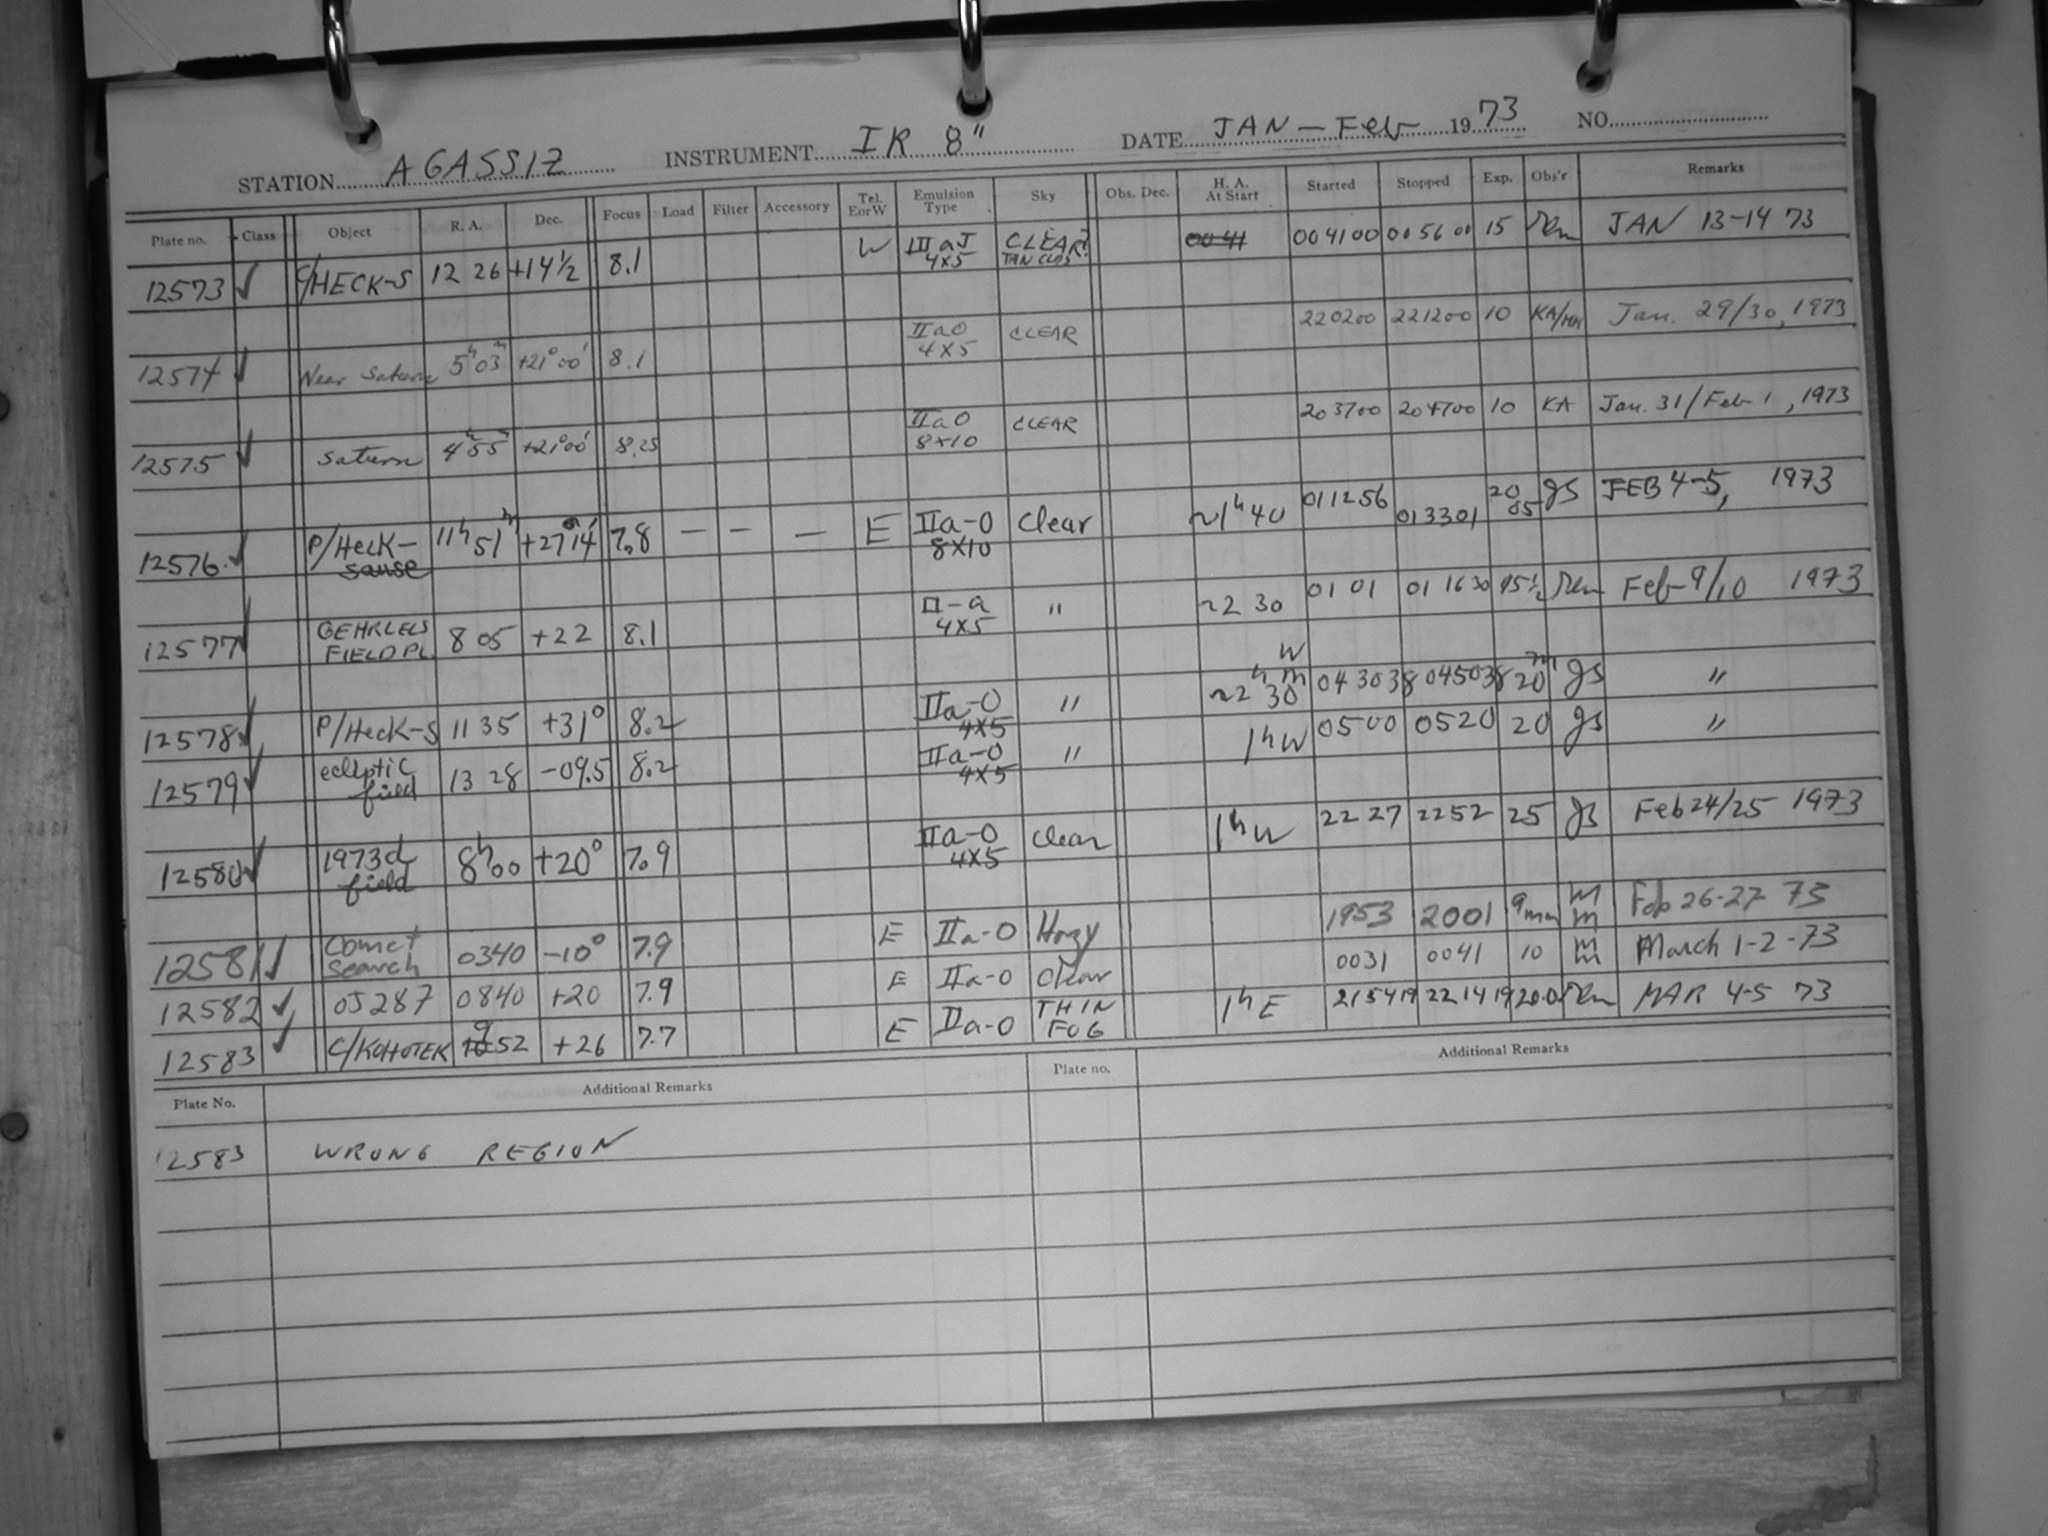 STATION AGASSIZ INSTRUMENT IR 8" DATE JAN-Feb 1973 NO.
Plate no. Class Object R. A. Dec. Focus Load Filter Accessory Tel. EorW Emulsion Type Sky Obs. Dec. H. A. At Start Started Stopped Exp. Obs'r Remarks
12573 ✓ C/HECK-S 12 26 +14½ 8.1 W IIIaJ 4x5 CLEAR? 0041 004100 005600 15 JAN 13-14 73
12574 ✓ Near Saturn 5h03m +21°00' 8.1 IIaO 4x5 CLEAR 220200 221200 10 KA/MM Jan. 29/30, 1973
12575 ✓ Saturn 4h55m +21°00' 8.25 IIaO 8x10 CLEAR 203700 204700 10 KA Jan. 31/Feb 1, 1973
12576 ✓ P/Heck-sause 11h51m +27°14' 7.8 — — — E IIa-O 8x10 Clear ~1h40 011256 013301 20 05 gs FEB 4-5, 1973
12577 ✓ GEHRLELS FIELD PL. 8 05 +22 8.1 II-a 4x5 " ~2 30 01 01 01 16 30 15½ Feb 9/10 1973
12578 ✓ P/Heck-S 11 35 +31° 8.2 IIa-O 4x5 " ~2h30m W 043038 045038 20m gs "
12579 ✓ ecliptic field 13 28 -09.5 8.2 IIa-O 4x5 " 1hW 0500 0520 20 gs "
12580 ✓ 1973d field 8h00 +20° 7.9 IIa-O 4x5 Clear 1hW 22 27 2252 25 gs Feb 24/25 1973
12581 ✓ Comet search 0340 -10° 7.9 E IIa-O Hazy 1953 2001 9min MM Feb 26-27 73
12582 ✓ OJ 287 0840 +20 7.9 E IIa-O Clear 0031 0041 10 MM March 1-2-73
12583 ✓ C/KOHOTEK 952 +26 7.7 E IIa-O THIN FOG 1hE 215419 221419 20.0 MAR 4-5 73
Plate No. Additional Remarks Plate no. Additional Remarks
12583 WRONG REGION